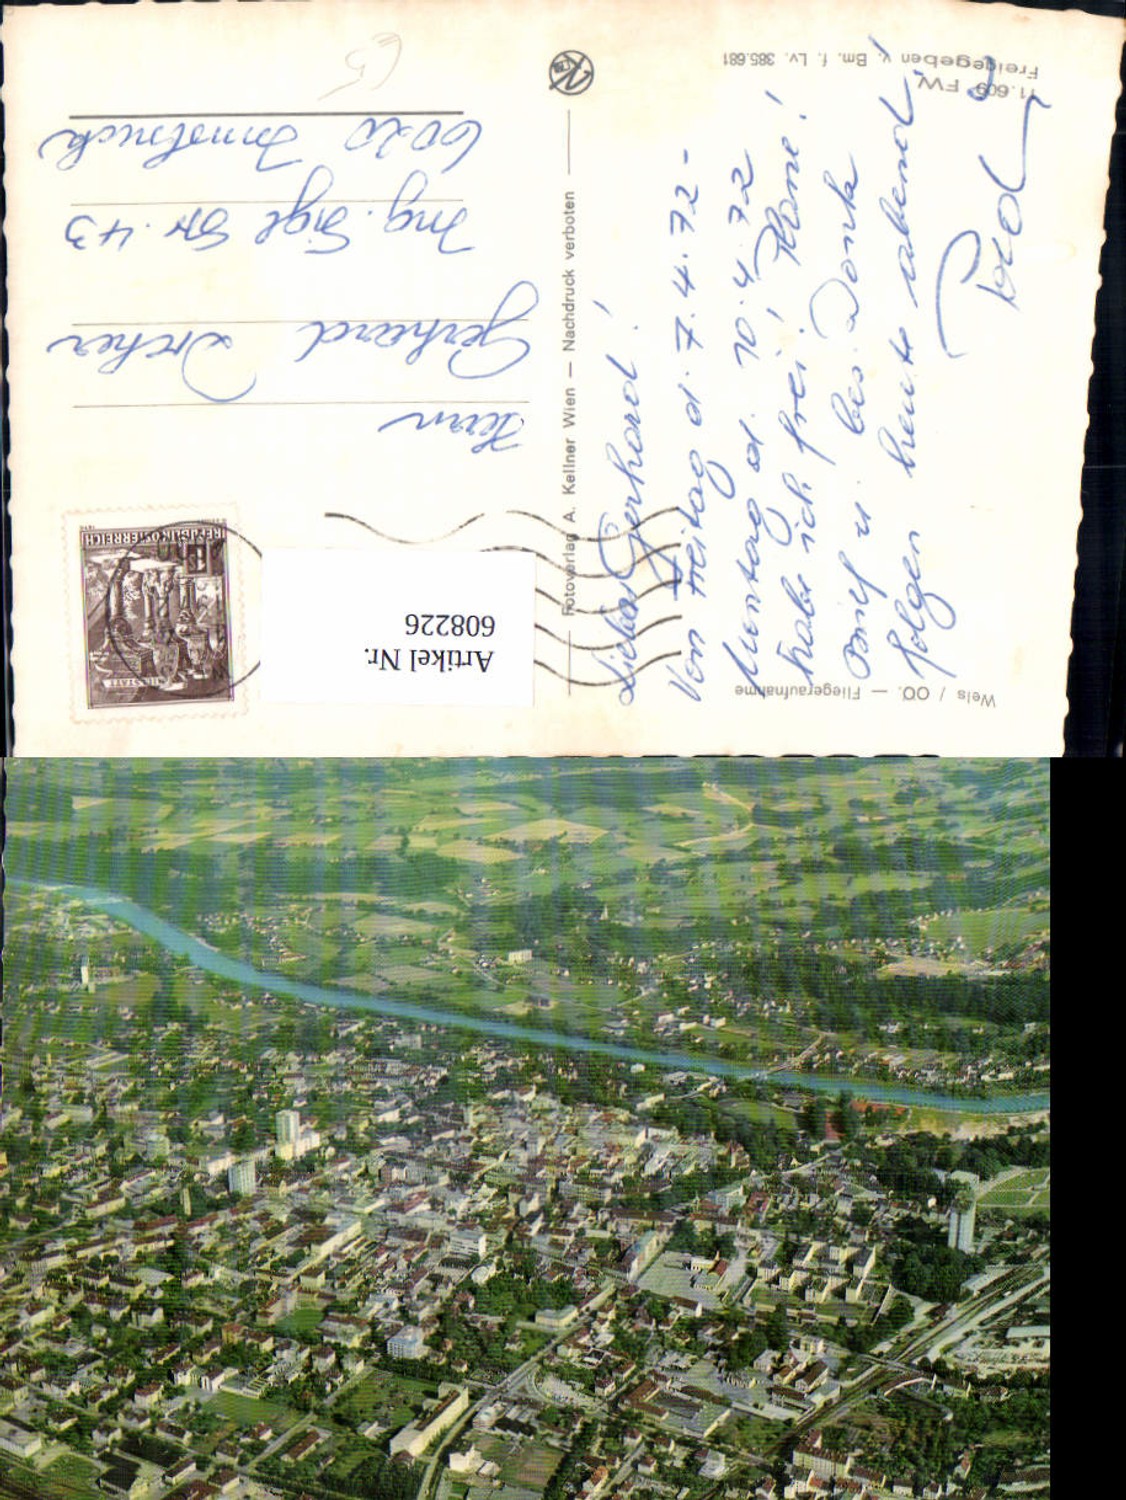 Wels / OÖ. — Fliegeraufnahme
Lieber Gerhard!
Von Freitag d. 7.4.72 -
Montag d. 10.4.72
habe ich frei!
Brief u. bes. Dank
folgen heute abend!
11.609 FW
Freigegeben v. Bm. f. Lv. 385.681
Fotoverlag A. Kellner Wien — Nachdruck verboten
REPUBLIK ÖSTERREICH
Artikel Nr.
608226
Herrn
Gerhard
Ing. Sigl Str. 43
6020 Innsbruck